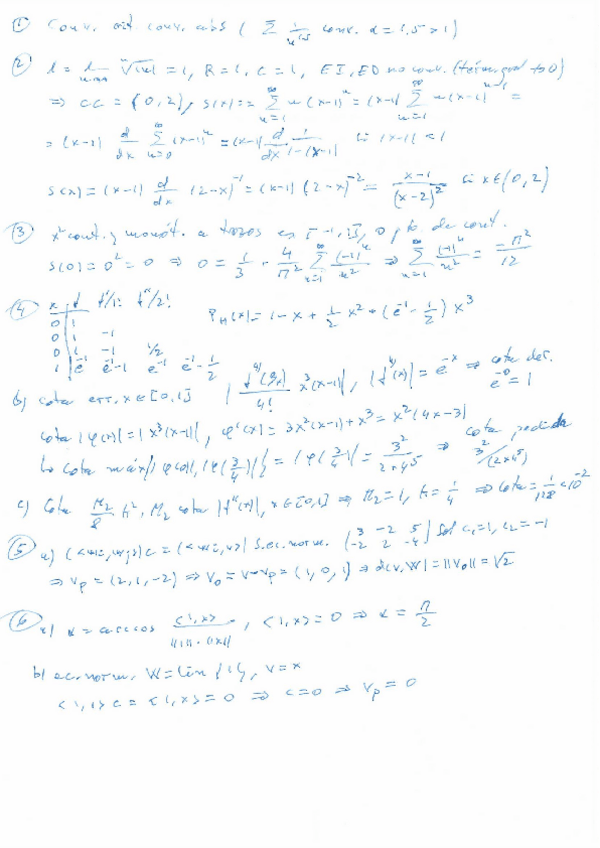 ① Conv. abs (Σ 1/n^1,5 conv. α = 1,5 > 1)
② l = lim n→∞ ⁿ√|n| = 1, R = 1, c = 1, EI, ED no conv. (térm. gral → 0)
⇒ CC = (0,2), S(x) = Σ n=1 ∞ n(x-1)^n = (x-1) Σ n=1 ∞ n(x-1)^n-1 =
= (x-1) d/dx Σ n=0 ∞ (x-1)^n = (x-1) d/dx 1/1-(x-1) si |x-1| < 1
S(x) = (x-1) d/dx (2-x)^-1 = (x-1)(2-x)^-2 = x-1/(x-2)^2 si x∈(0,2)
③ x² cont. y monót. a trozos en [-1,1], 0 pto. de cont.
S(0) = 0² = 0 ⇒ 0 = 1/3 + 4/π² Σ n=1 ∞ (-1)^n/n² ⇒ Σ n=1 ∞ (-1)^n/n² = -π²/12
④ x f f'/1! f''/2!
0 1
0 1 -1 P_H(x) = 1 - x + 1/2 x² + (e^-1 - 1/2) x³
0 1 -1 1/2
1 e^-1 e^-1 -1 e^-1 e^-1 - 1/2
b) cota err. x∈[0,1] |f^4)(ξx)/4! x³(x-1)|, |f^4)(x)| = e^-x ⇒ cota der. e^-0 = 1
cota |φ(x)| = |x³(x-1)|, φ'(x) = 3x²(x-1) + x³ = x²(4x-3)
↳ cota máx{φ(0), |φ(3/4)|} = |φ(3/4)| = 3²/2×4⁵ ⇒ cota pedida 3²/(2×4⁵)
c) Cota M₂/8 h², M₂ cota |f''(x)|, x∈[0,1] ⇒ M₂ = 1, h = 1/4 ⇒ cota = 1/128 < 10^-2
⑤ a) S.ec.norm. (3 -2 5 / -2 2 -4) Sol c₁ = 1, c₂ = -1
⇒ vp = (2,1,-2) ⇒ v₀ = v - vp = (1,0,1) ⇒ d(v,W) = ||v₀|| = √2
⑥ a) α = arccos <1,x>/||1||·||x||, <1,x> = 0 ⇒ α = π/2
b) ec. norm. W = lin{1}, v = x
<1,1> c = <1,x> = 0 ⇒ c = 0 ⇒ vp = 0